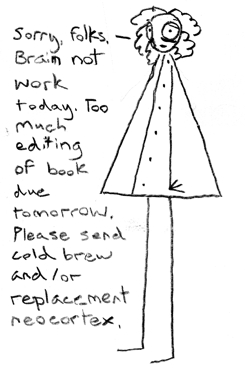 Sorry, folks.
Brain not
work
today. Too
much
editing
of book
due
tomorrow.
Please send
cold brew
and/or
replacement
neocortex.